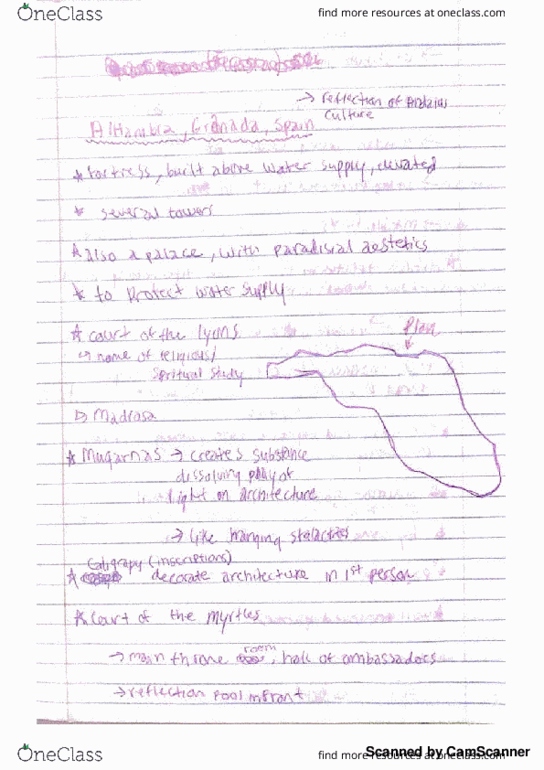 OneClass
find more resources at oneclass.com
→ reflection of
culture
Alhambra, Granada, Spain
* fortress, built above water supply, elevated
* several towers
* also a palace, with paradisial aestetics
* to protect water supply
* court of the lyons
Plan
↳ name of religious/
Spiritual Study
▷ Madrasa
* Muqarnas → creates substance
dissolving play of
light on architecture
→ like hanging stalactites
Caligrapy (inscriptions)
* decorate architecture in 1st person
* Court of the Myrtles
→ main throne room, hall of ambassadors
→ reflection pool in front
OneClass
find more resources at oneclass.com
Scanned by CamScanner